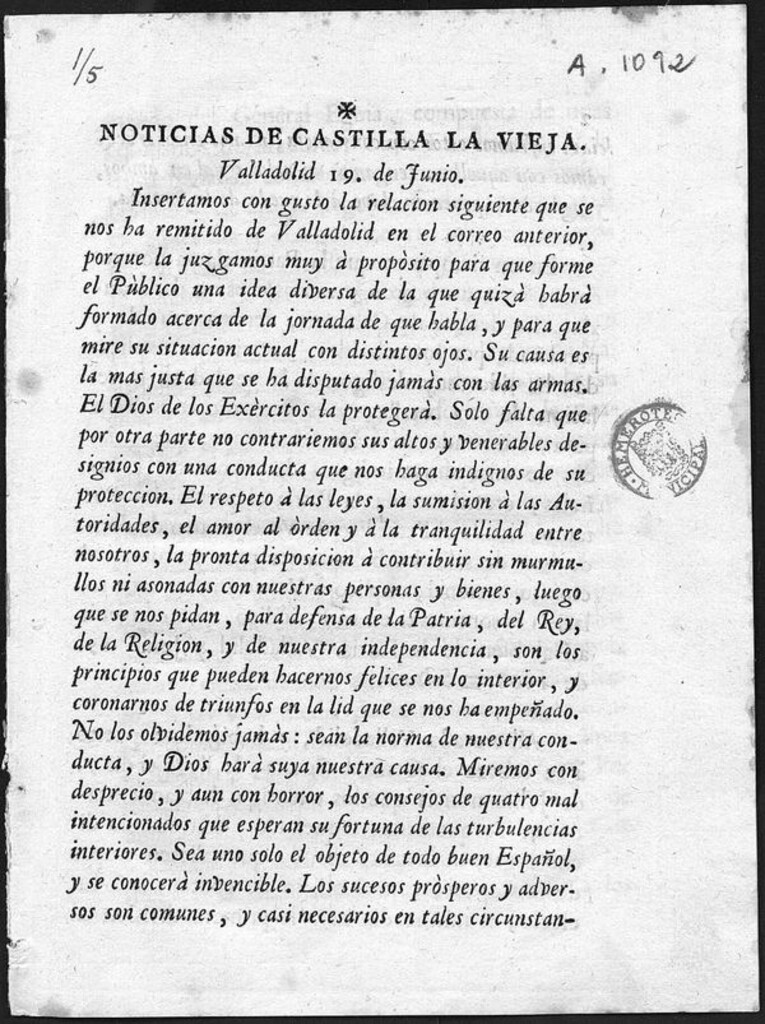 1/5
A. 1092
NOTICIAS DE CASTILLA LA VIEJA.
Valladolid 19. de Junio.
Insertamos con gusto la relacion siguiente que se
nos ha remitido de Valladolid en el correo anterior,
porque la juzgamos muy à propòsito para que forme
el Pùblico una idea diversa de la que quizà habrà
formado acerca de la jornada de que habla, y para que
mire su situacion actual con distintos ojos. Su causa es
la mas justa que se ha disputado jamàs con las armas.
El Dios de los Exèrcitos la protegerà. Solo falta que
por otra parte no contrariemos sus altos y venerables de-
signios con una conducta que nos haga indignos de su
proteccion. El respeto à las leyes, la sumision à las Au-
toridades, el amor al òrden y à la tranquilidad entre
nosotros, la pronta disposicion à contribuir sin murmu-
llos ni asonadas con nuestras personas y bienes, luego
que se nos pidan, para defensa de la Patria, del Rey,
de la Religion, y de nuestra independencia, son los
principios que pueden hacernos felices en lo interior, y
coronarnos de triunfos en la lid que se nos ha empeñado.
No los olvidemos jamàs: sean la norma de nuestra con-
ducta, y Dios harà suya nuestra causa. Miremos con
desprecio, y aun con horror, los consejos de quatro mal
intencionados que esperan su fortuna de las turbulencias
interiores. Sea uno solo el objeto de todo buen Español,
y se conocerà invencible. Los sucesos pròsperos y adver-
sos son comunes, y casi necesarios en tales circunstan-
HEMEROTE
ICIPAL